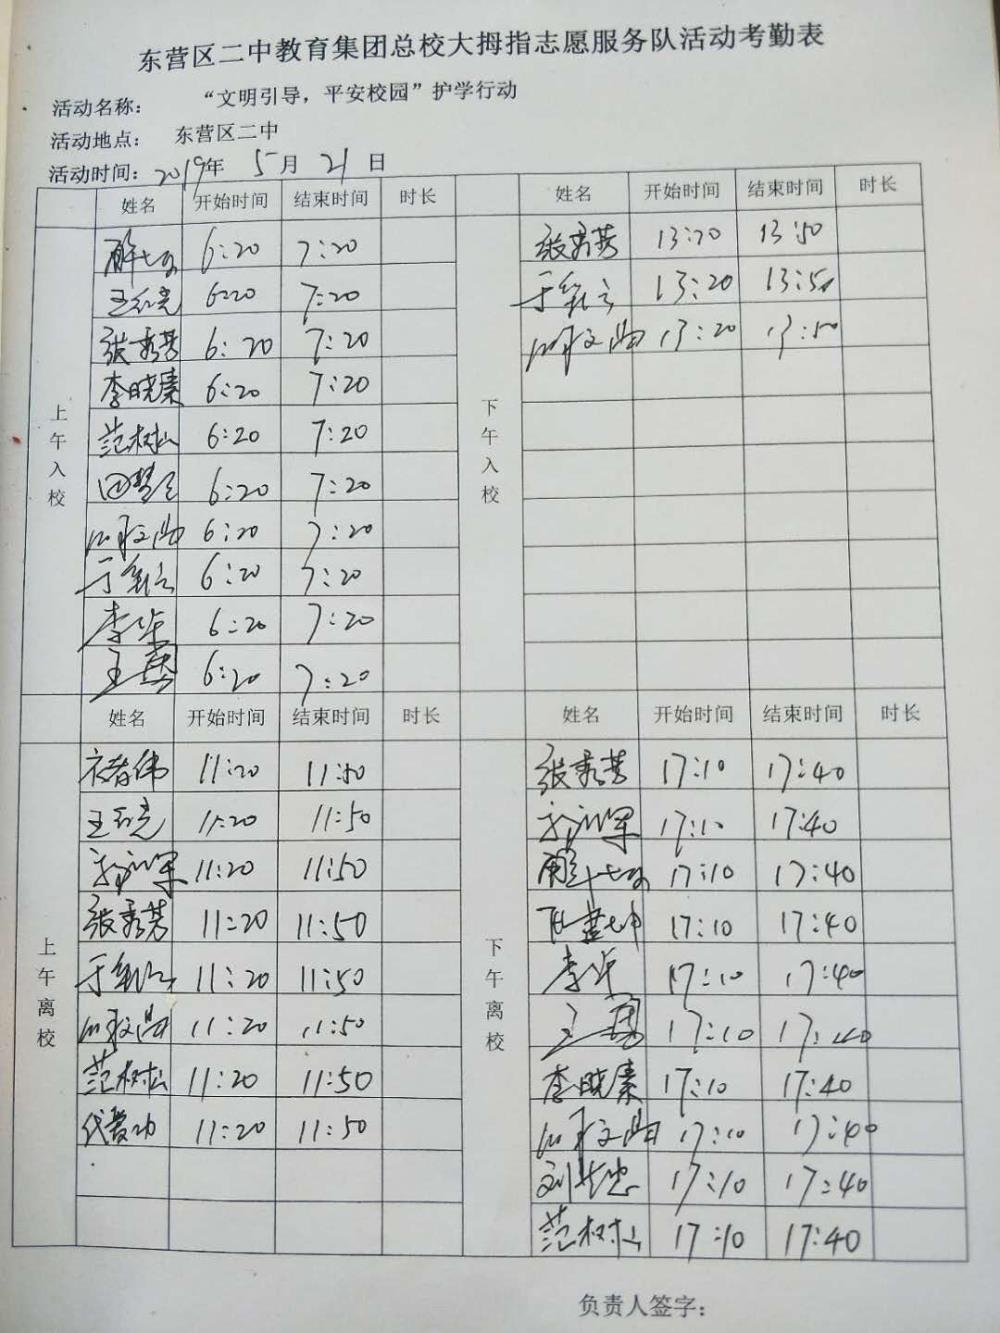 东营区二中教育集团总校大拇指志愿服务队活动考勤表
活动名称： “文明引导，平安校园”护学行动
活动地点： 东营区二中
活动时间：2019年 5月 21日
姓名 开始时间 结束时间 时长 姓名 开始时间 结束时间 时长
上午入校
6:20 7:20
6:20 7:20
张秀芳 6:20 7:20
李晓秦 6:20 7:20
范树松 6:20 7:20
6:20 7:20
6:20 7:20
6:20 7:20
李华 6:20 7:20
王勇 6:20 7:20
下午入校
张秀芳 13:20 13:50
13:20 13:50
13:20 13:50
姓名 开始时间 结束时间 时长 姓名 开始时间 结束时间 时长
上午离校
11:20 11:50
11:20 11:50
11:20 11:50
张秀芳 11:20 11:50
11:20 11:50
11:20 11:50
范树松 11:20 11:50
代爱功 11:20 11:50
下午离校
张秀芳 17:10 17:40
17:10 17:40
17:10 17:40
17:10 17:40
李华 17:10 17:40
王勇 17:10 17:40
李晓秦 17:10 17:40
17:10 17:40
17:10 17:40
范树松 17:10 17:40
负责人签字：